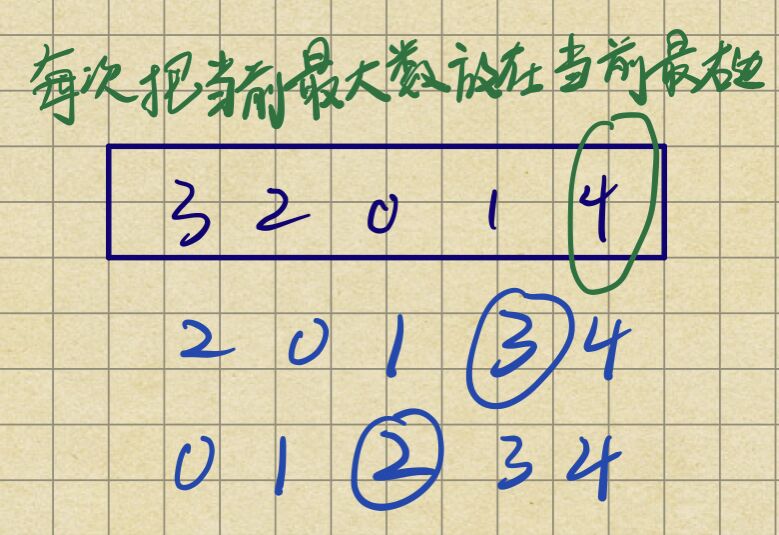 每次把当前最大数放在当前最右边
3 2 0 1 4
2 0 1 3 4
0 1 2 3 4